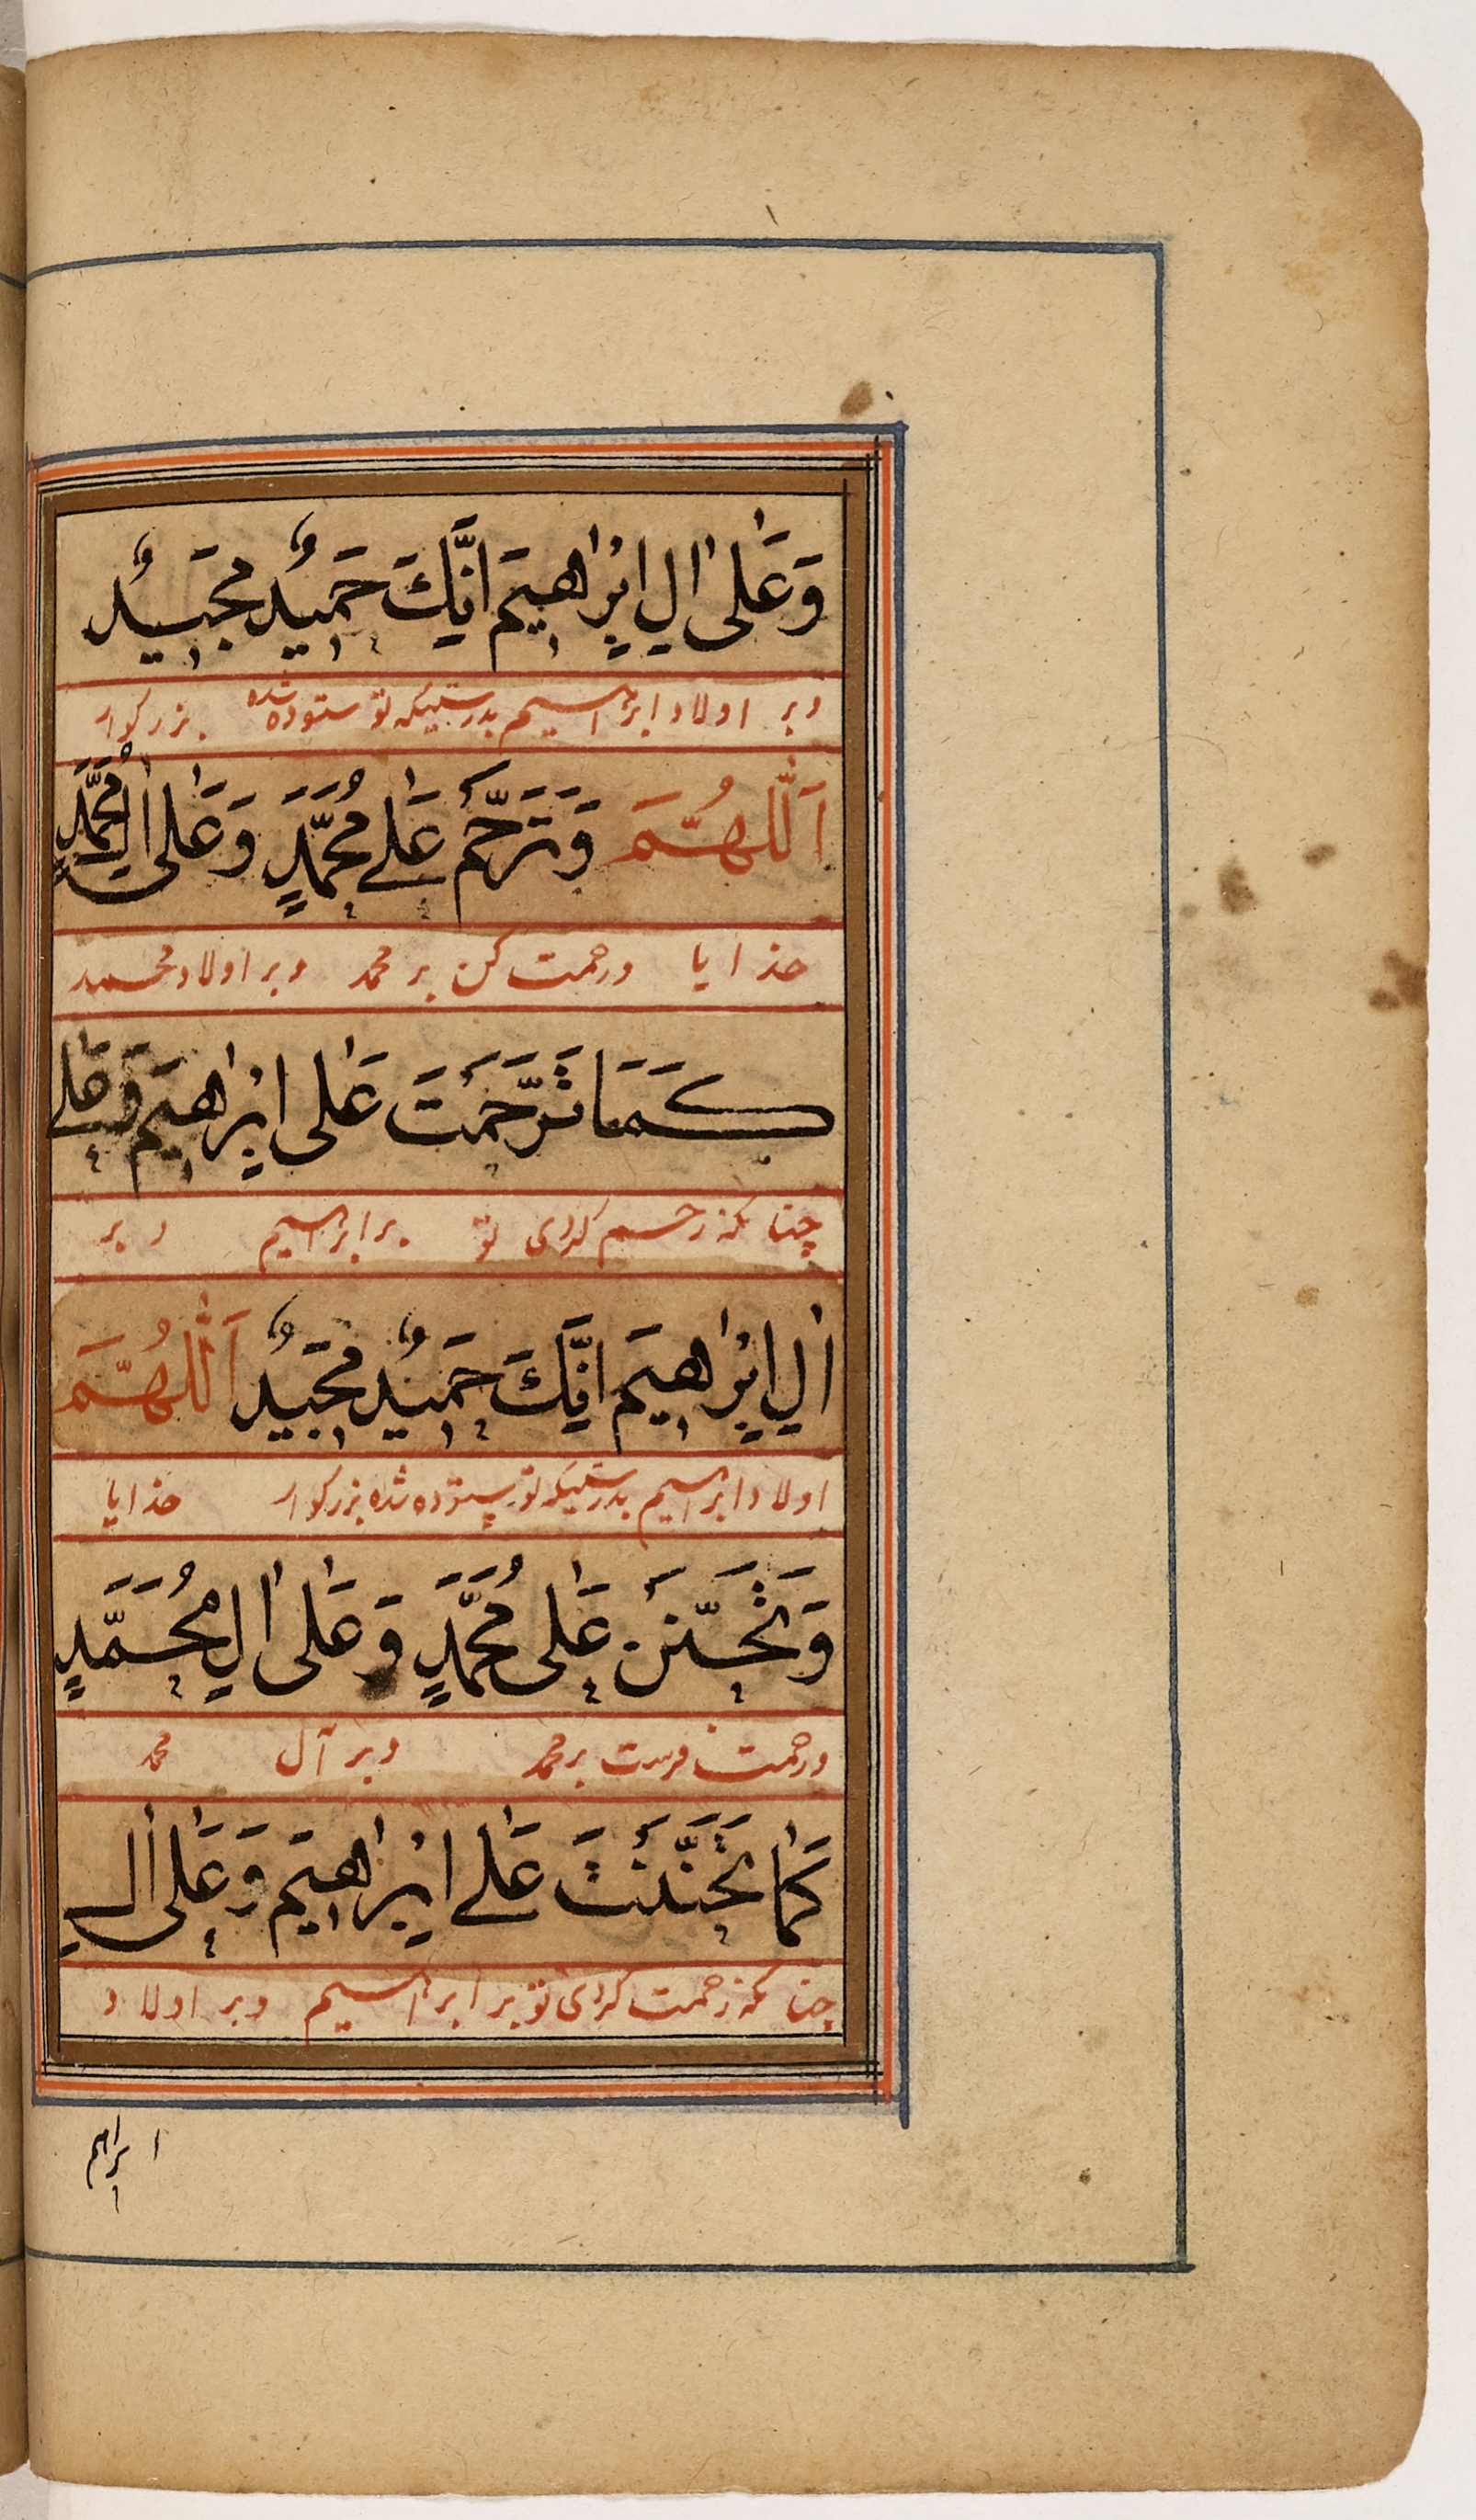 وَعَلٰى اٰلِ اِبْرٰاهِيمَ اِنَّكَ حَمِيدٌ مَجِيدٌ
و بر اولاد ابراهيم بدرستيكه تو ستوده شده بزركوار
اَللّٰهُمَّ وَتَرَحَّمْ عَلٰے مُحَمَّدٍ وَعَلٰى اٰلِ مُحَمَّدٍ
خدايا ورحمت كن بر محمد وبر اولاد محمد
كَمَا تَرَحَّمْتَ عَلٰى اِبْرٰاهِيمَ وَعَلٰے
چنانكه رحم كردى تو بر ابراهيم و بر
اٰلِ اِبْرٰاهِيمَ اِنَّكَ حَمِيدٌ مَجِيدٌ اَللّٰهُمَّ
اولاد ابراهيم بدرستيكه تو ستوده شده بزركوار خدايا
وَتَحَنَّنْ عَلٰى مُحَمَّدٍ وَعَلٰى اٰلِ مُحَمَّدٍ
ورحمت فرست بر محمد وبر آل محمد
كَمٰا تَحَنَّنْتَ عَلٰے اِبْرٰاهِيمَ وَعَلٰى اٰلِ
چنانكه رحمت كردى تو بر ابراهيم وبر اولاد
ابراهيم